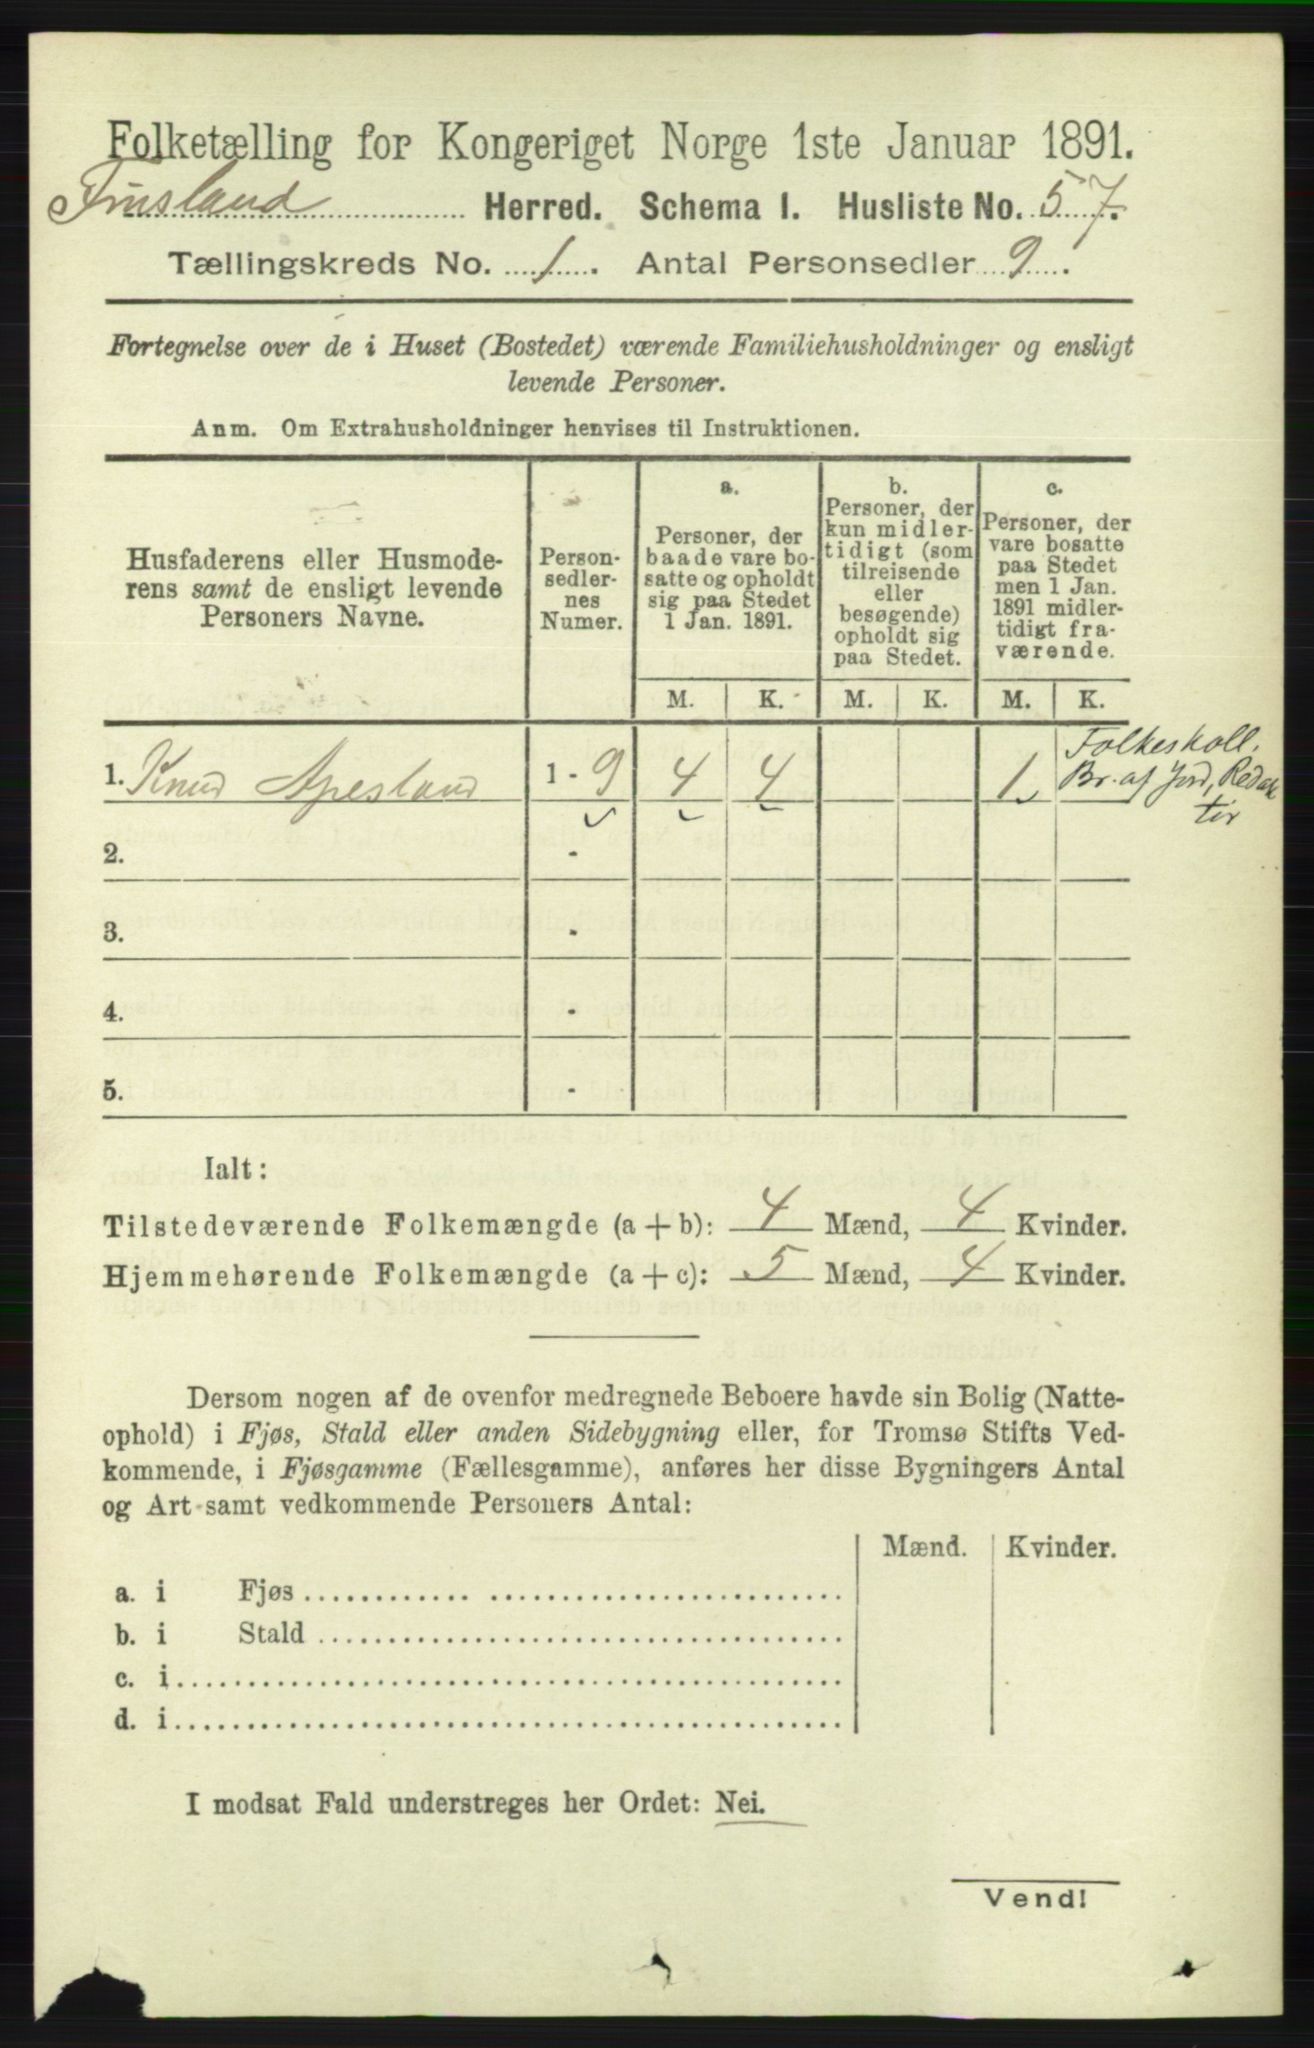 Folketælling for Kongeriget Norge 1ste Januar 1891.
Finsland Herred. Schema I. Husliste No. 57.
Tællingskreds No. 1. Antal Personsedler 9.
Fortegnelse over de i Huset (Bostedet) værende Familiehusholdninger og ensligt
levende Personer.
Anm. Om Extrahusholdninger henvises til Instruktionen.
Husfaderens eller Husmode-
rens samt de ensligt levende
Personers Navne.
Person-
sedler-
nes
Numer.
a.
Personer, der
baade vare bo-
satte og opholdt
sig paa Stedet
1 Jan. 1891.
b.
Personer, der
kun midler-
tidigt (som
tilreisende
eller
besøgende)
opholdt sig
paa Stedet.
c.
Personer, der
vare bosatte
paa Stedet
men 1 Jan.
1891 midler-
tidigt fra-
værende.
M. K. M. K. M. K.
1. Knud Apesland 1 - 9 4 4 1
Folkeskoll.
Br. af Jord, Redak
tør
2. -
3. -
4. -
5. -
Ialt:
Tilstedeværende Folkemængde (a + b): 4 Mænd, 4 Kvinder.
Hjemmehørende Folkemængde (a + c): 5 Mænd, 4 Kvinder.
Dersom nogen af de ovenfor medregnede Beboere havde sin Bolig (Natte-
ophold) i Fjøs, Stald eller anden Sidebygning eller, for Tromsø Stifts Ved-
kommende, i Fjøsgamme (Fællesgamme), anføres her disse Bygningers Antal
og Art samt vedkommende Personers Antal:
Mænd. Kvinder.
a. i Fjøs
b. i Stald
c. i
d. i
I modsat Fald understreges her Ordet: Nei.
Vend!